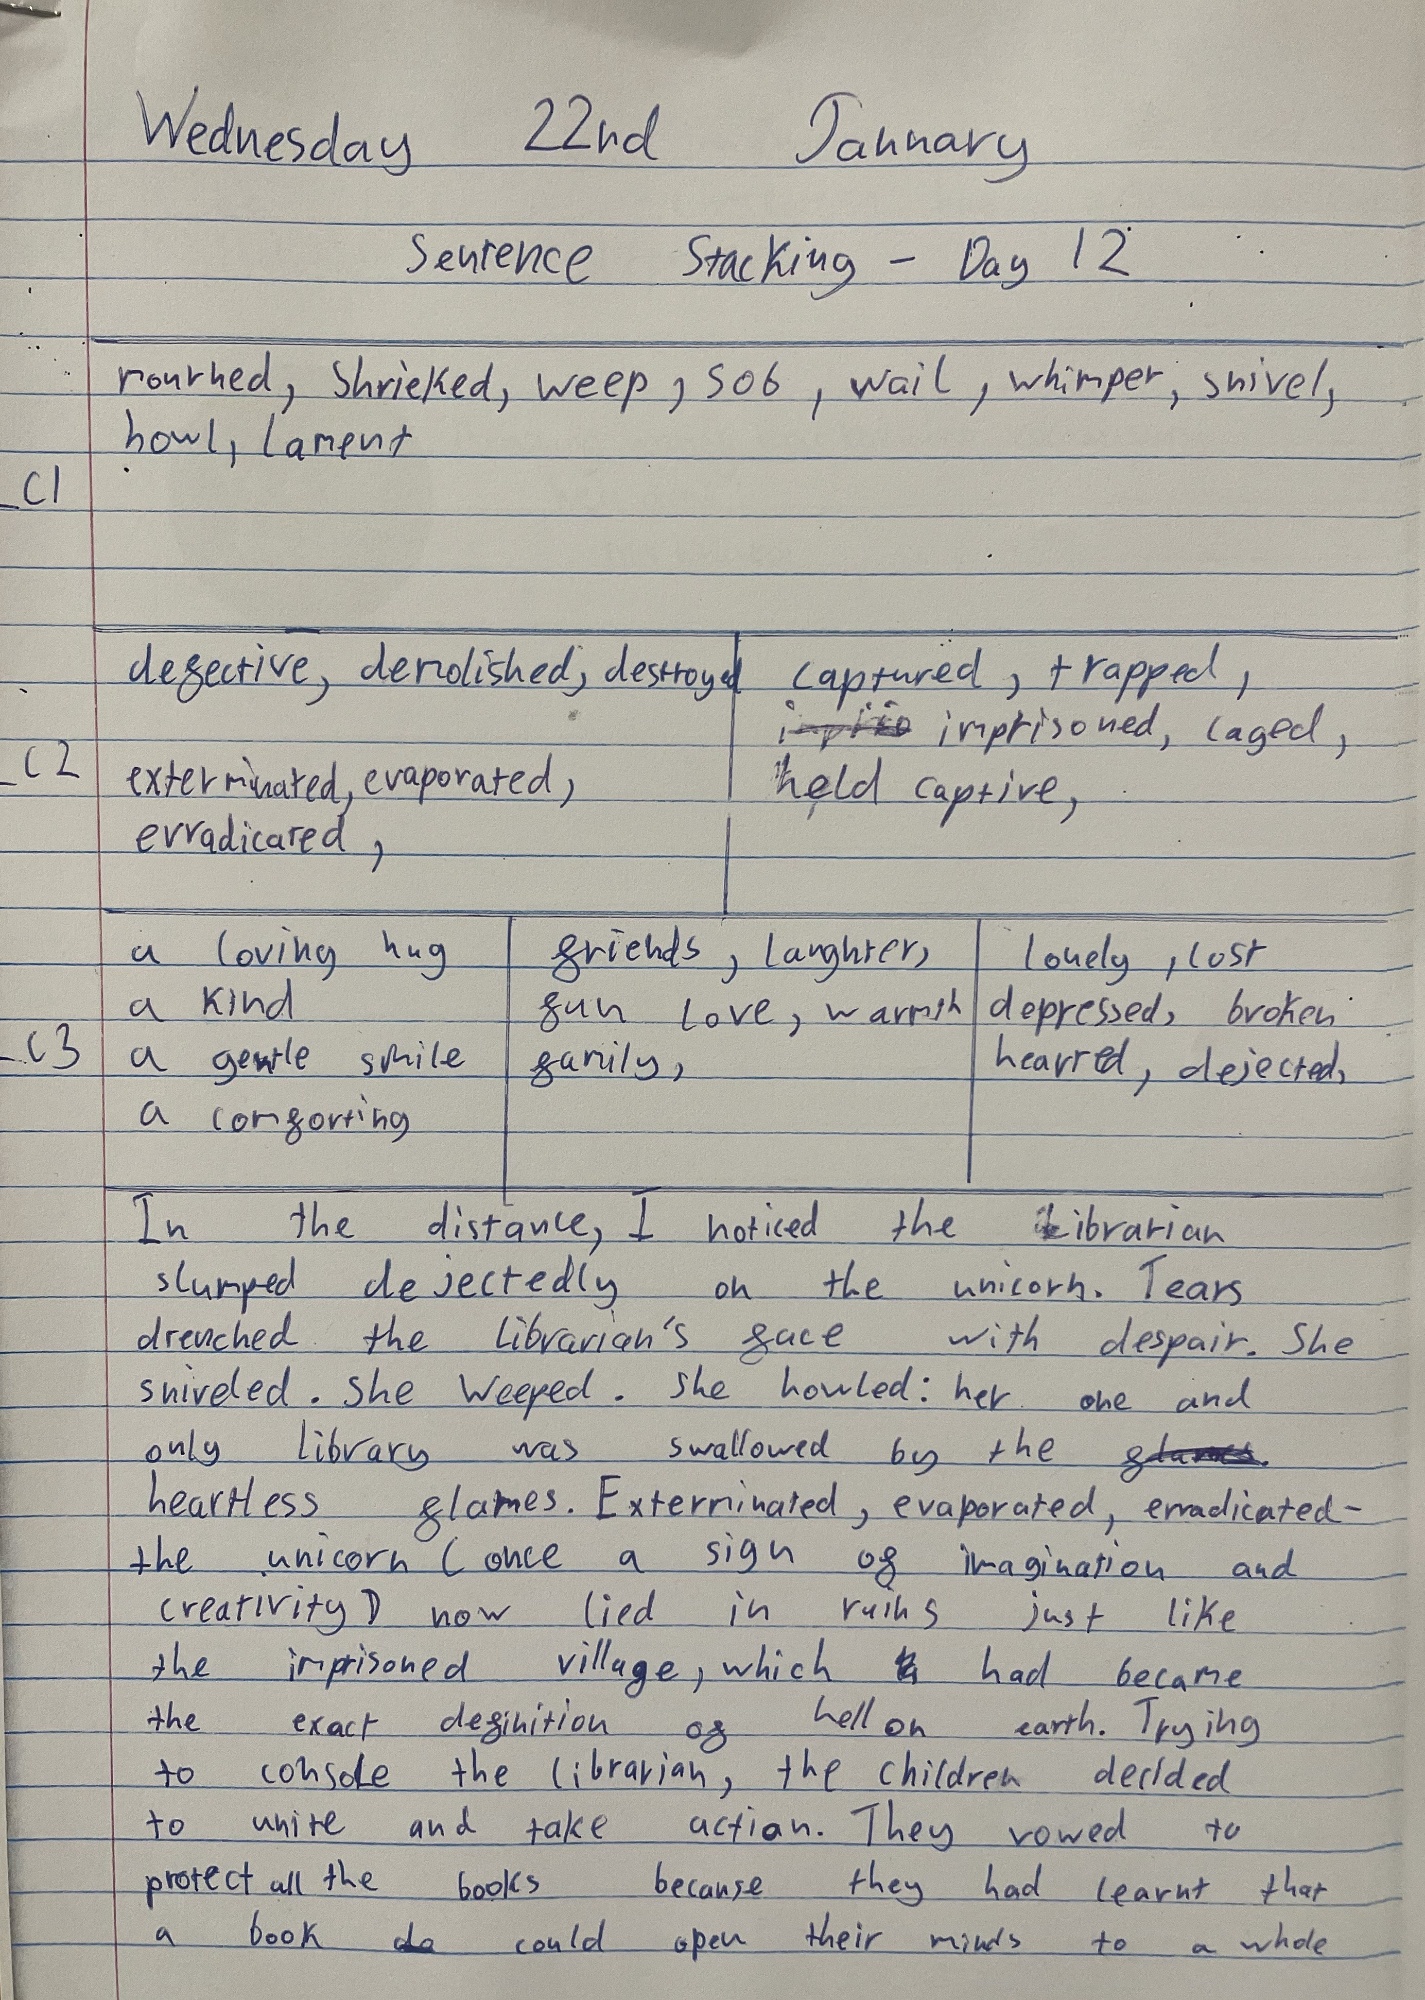 Wednesday 22nd January
Sentence Stacking - Day 12
mourned, shrieked, weep, sob, wail, whimper, snivel,
howl, lament
C1
defective, demolished, destroyed
exterminated, evaporated,
erradicated,
captured, trapped,
imprisoned, caged,
held captive,
C2
a loving hug
a kind
a gentle smile
a comforting
friends, laughter,
fun love, warmth
family,
lonely, lost
depressed, broken
hearted, dejected,
C3
In the distance, I noticed the Librarian
slumped dejectedly on the unicorn. Tears
drenched the Librarian's face with despair. She
sniveled. She weeped. She howled: her one and
only library was swallowed by the
heartless flames. Exterminated, evaporated, erradicated-
the unicorn (once a sign of imagination and
creativity) now lied in ruins just like
the imprisoned village, which had became
the exact definition of hell on earth. Trying
to console the librarian, the children decided
to unite and take action. They vowed to
protect all the books because they had learnt that
a book could open their minds to a whole